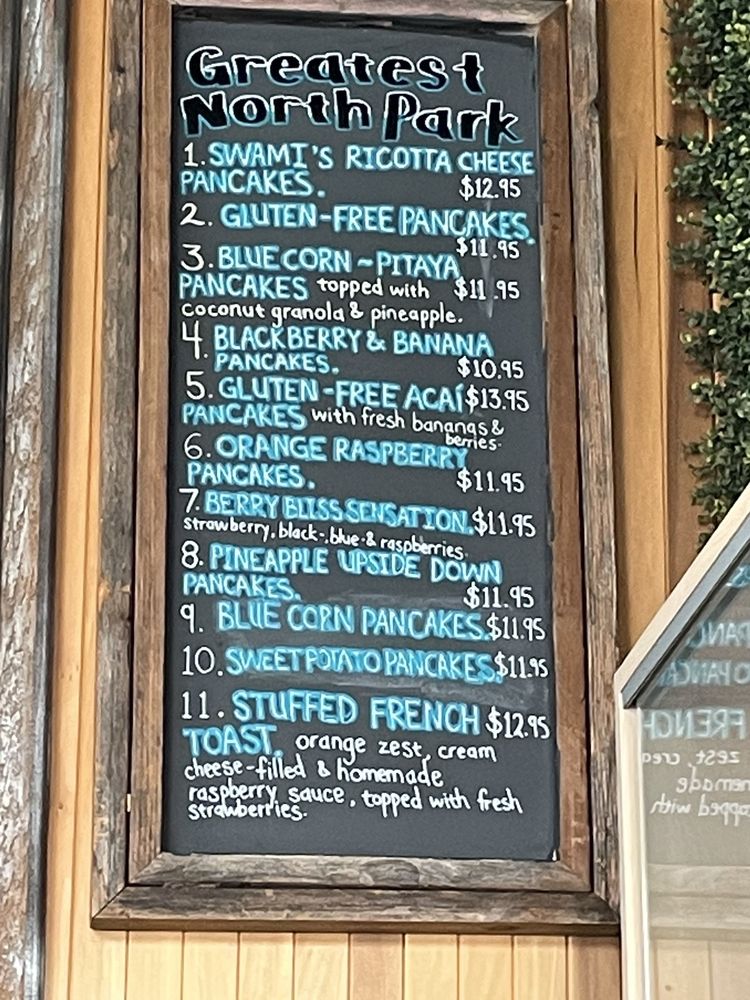 Greatest
North Park
1. SWAMI'S RICOTTA CHEESE
PANCAKES. $12.95
2. GLUTEN-FREE PANCAKES.
$11.95
3. BLUE CORN-PITAYA
PANCAKES topped with $11.95
coconut granola & pineapple.
4. BLACKBERRY & BANANA
PANCAKES. $10.95
5. GLUTEN-FREE ACAÍ $13.95
PANCAKES with fresh bananas &
berries.
6. ORANGE RASPBERRY
PANCAKES. $11.95
7. BERRY BLISS SENSATION. $11.95
strawberry, black-, blue- & raspberries.
8. PINEAPPLE UPSIDE DOWN
PANCAKES. $11.95
9. BLUE CORN PANCAKES. $11.95
10. SWEET POTATO PANCAKES. $11.95
11. STUFFED FRENCH $12.95
TOAST. orange zest, cream
cheese-filled & homemade
raspberry sauce, topped with fresh
strawberries.